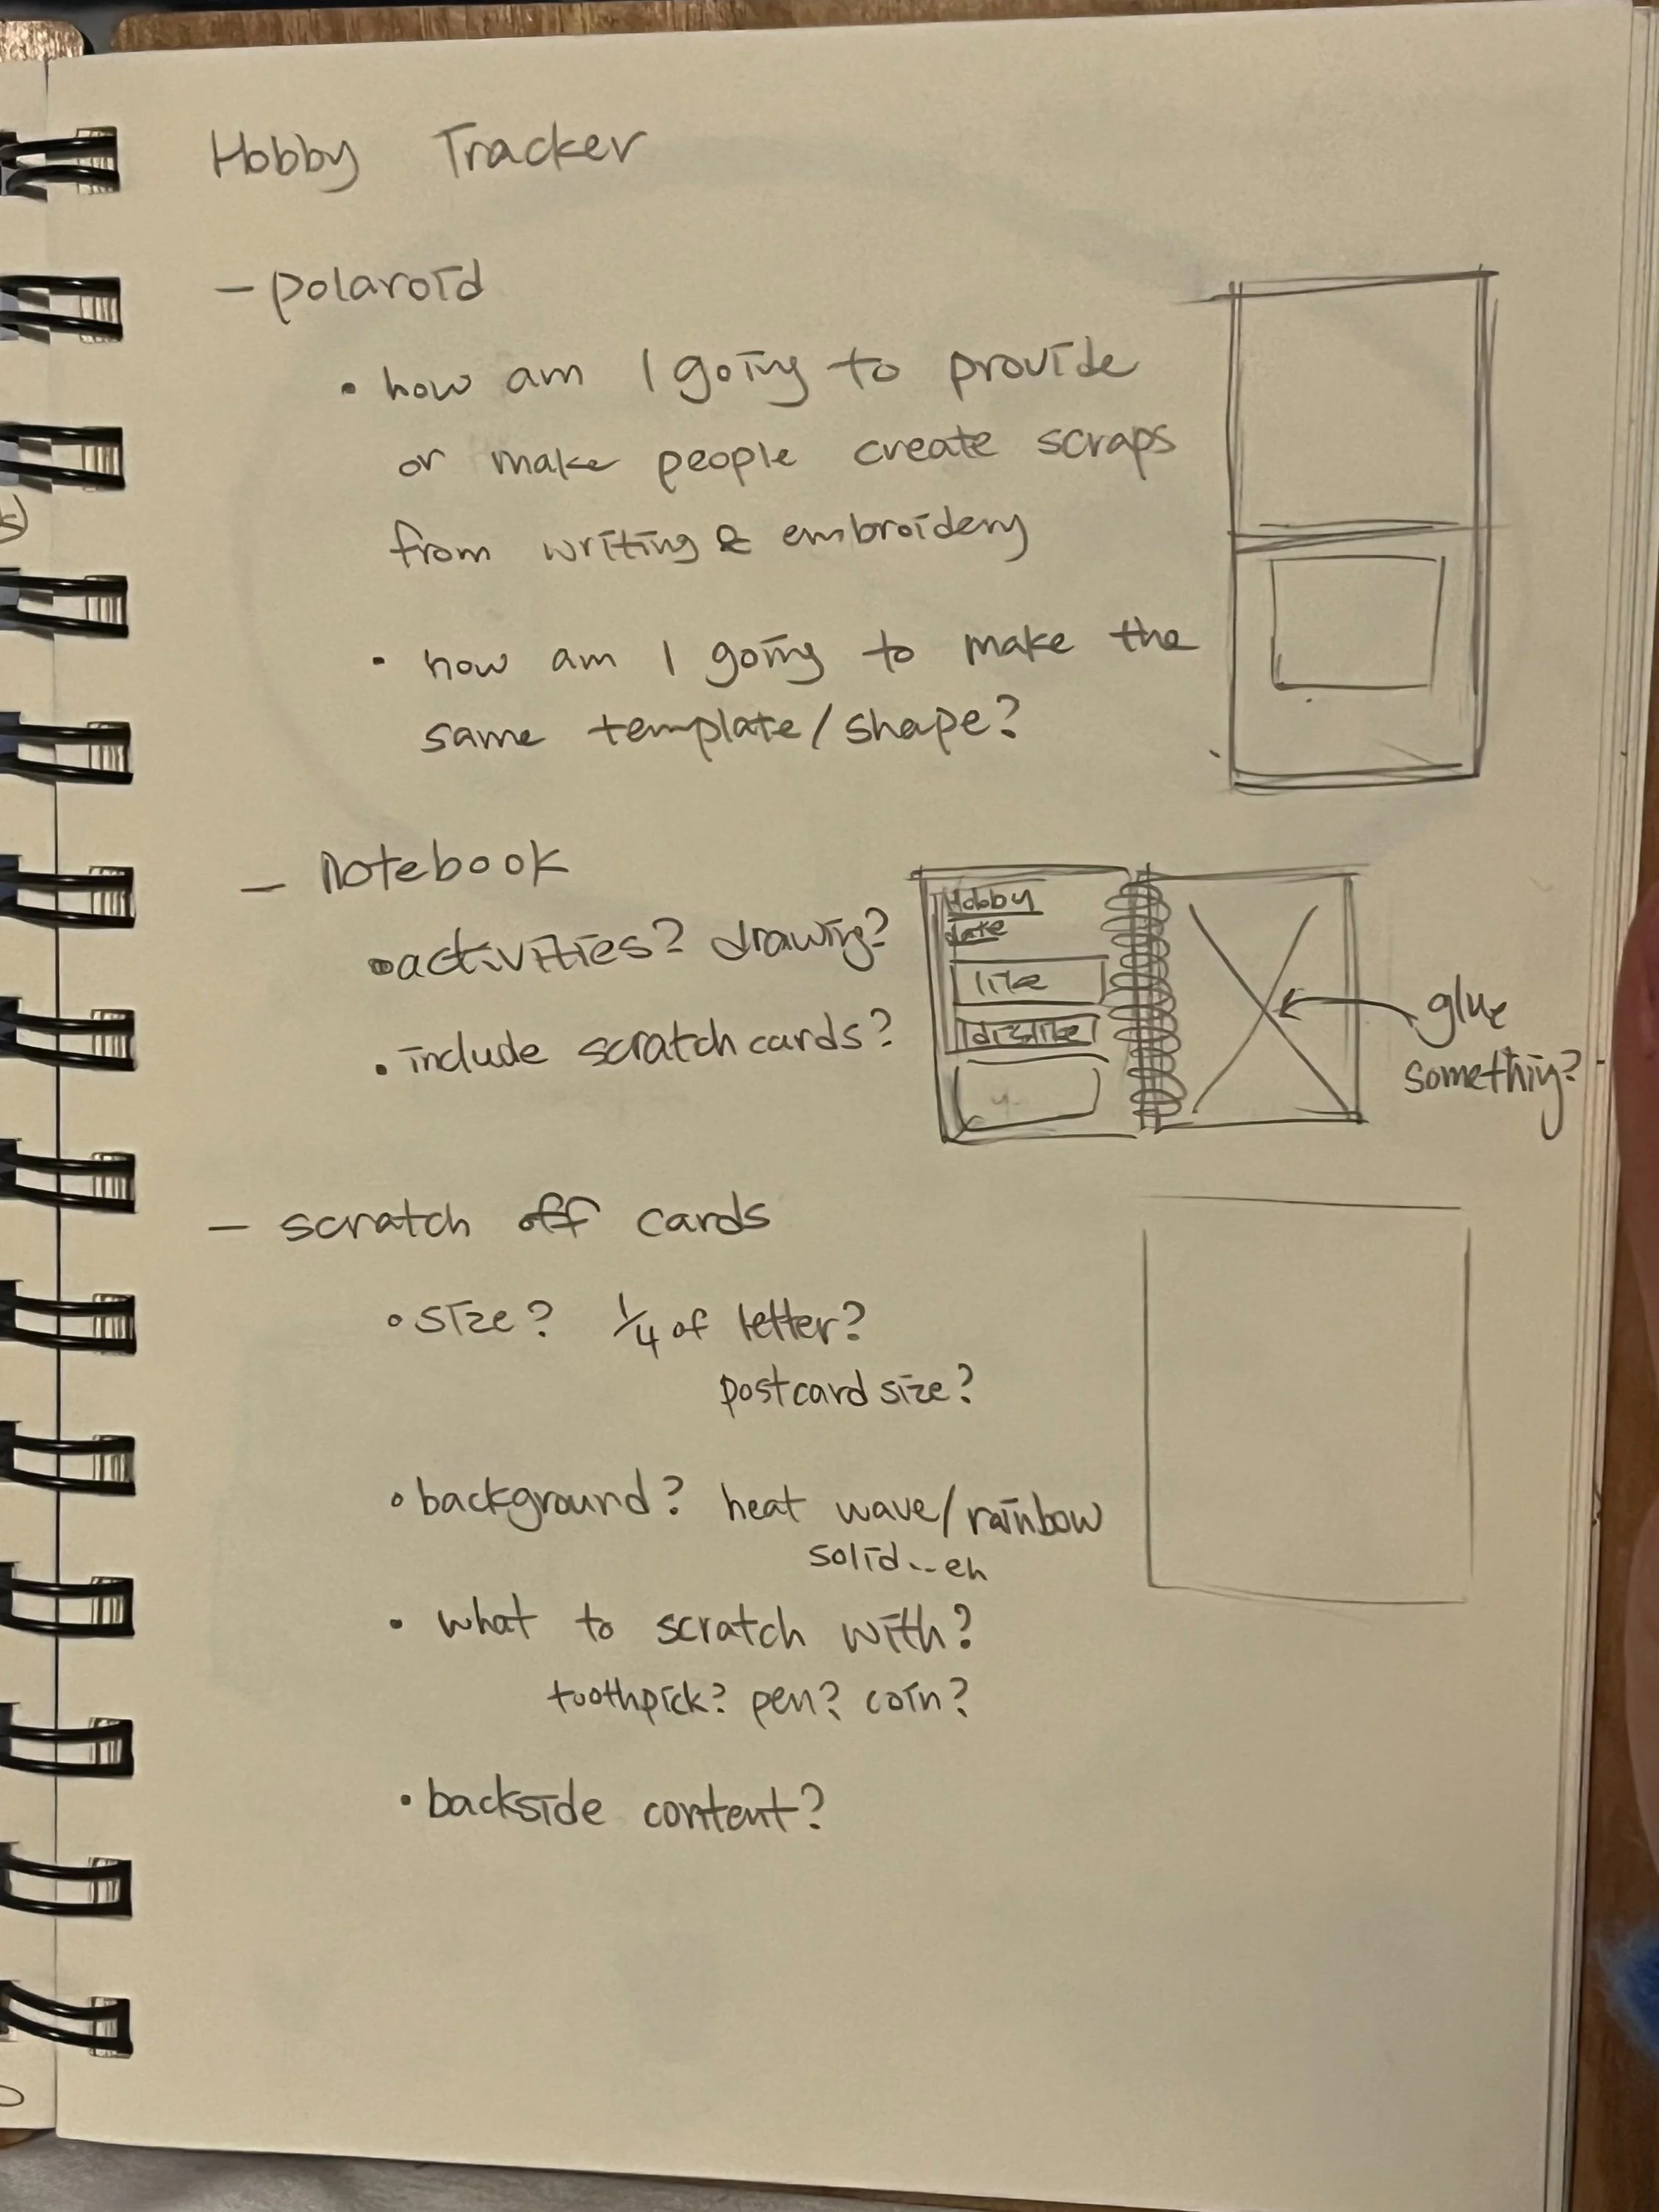 Hobby Tracker
- polaroid
• how am I going to provide
or make people create scraps
from writing & embroidery
• how am I going to make the
same template/shape?
- notebook
• activities? drawing?
• include scratch cards?
Hobby
date
like
dislike
glue
something?
- scratch off cards
• size? 1/4 of letter?
postcard size?
• background? heat wave/rainbow
solid...eh
• what to scratch with?
toothpick? pen? coin?
• backside content?